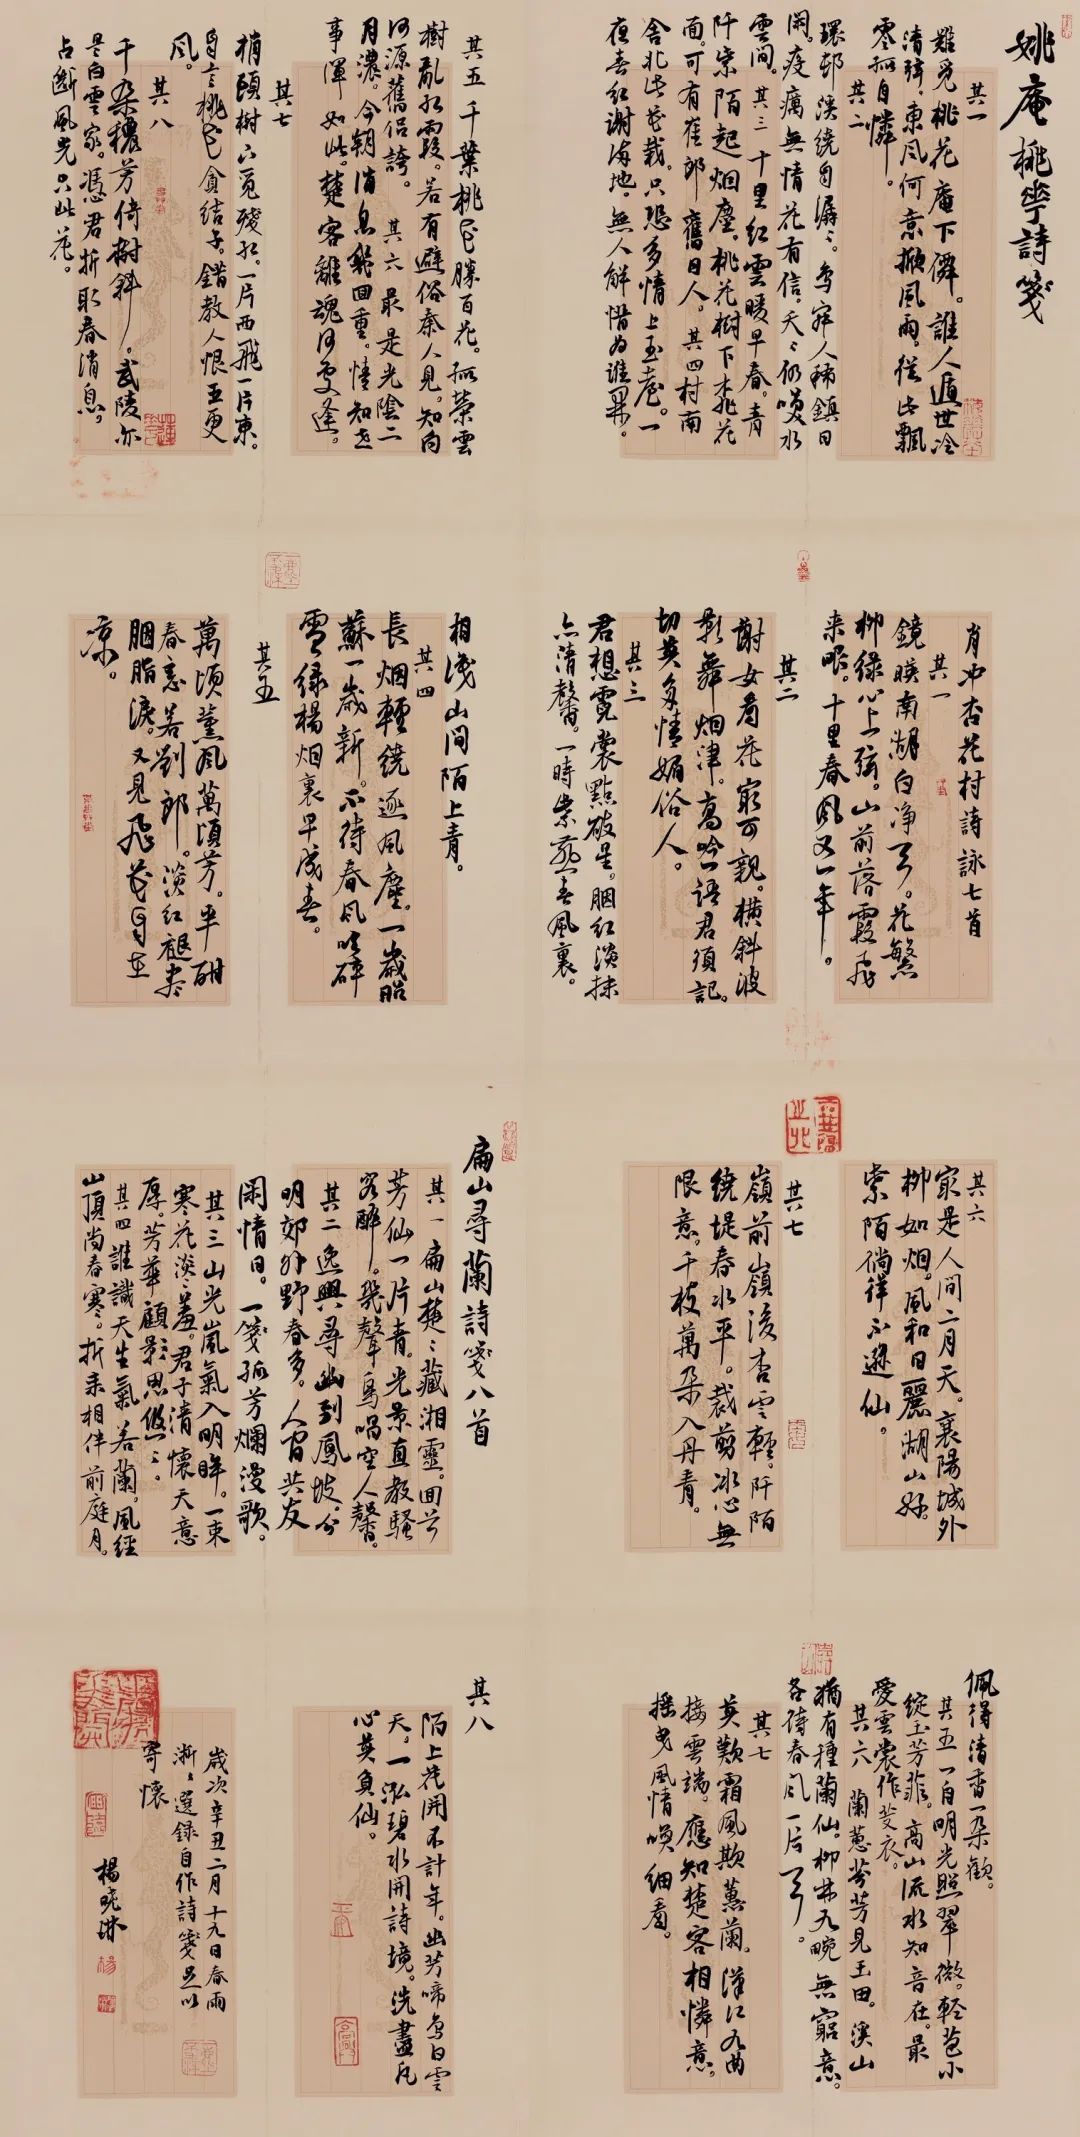 姚庵桃華詩箋
其一
難覓桃花庵下僊。誰人遁世冷
清弦。東風何意撇風雨。從此飄
零孤自憐。
其二
環邨溪繞自潺〻。鳥寂人稀鎮日
閑。疫癘無情花有信。天〻仍喚水
雲間。其三 十里紅雲暖早春。青
阡紫陌起烟塵。桃花樹下桃花
面。可有崔郎舊日人。其四 村南
舍北此花栽。只恐多情上玉臺。一
夜春紅謝滿地。無人解惜為誰開。
其五 千葉桃花勝百花。孤榮雲
樹亂紅霞。若有避俗秦人見。知向
河源舊侶誇。其六 最是光陰二
月濃。今朝消息幾回重。情知世
事渾如此。楚客離魂何處逢。
其七
梢頭樹下覓殘紅。一片西飛一片東。
自言桃花貪結子。錯教人恨五更
風。
其八
千朵穠芳倚樹斜。武陵亦
是白雲家。憑君折取春消息。
占斷風光只此花。
肖沖杏花村詩詠七首
其一
鏡暎南湖白净天。花繁
柳綠心上弦。山前落霞飛
来眼。十里春風又一年。
其二
謝女看花寂可親。橫斜波
影舞烟津。高吟一語君須記。
切莫多情媚俗人。
其三
君想霓裳點破星。胭紅淡抹
亦清馨。一時紫燕春風裏。
相淺山間陌上青。
其四
長烟輕繞逐風塵。一歲昭
蘇一歲新。不待春風吹碎
雪。綠楊烟裏早成春。
其五
萬頃薰風萬頃芳。半酣
春意若劉郎。淡紅褪盡
胭脂淚。又見飛花自在
凉。
其六
寂是人間二月天。襄陽城外
柳如烟。風和日麗湖山好。
紫陌徜徉不遜仙。
其七
嶺前嶺後杏雲輕。阡陌
繞堤春水平。裁剪冰心無
限意。千枝萬朵入丹青。
扁山尋蘭詩箋八首
其一 扁山楚〻藏湘靈。回首
芳仙一片青。光景直教騷
客醉。幾聲鳥唱空人馨。
其二 逸興尋幽到鳳坡。分
明郊外野春多。人間共友
閑情日。一箋孤芳爛漫歌。
其三 山光嵐氣入明眸。一束
寒花淡〻羞。君子清懷天意
厚。芳華顧影思悠〻。
其四 誰識天生氣若蘭。風經
山頂尚春寒。折来相伴前庭月。
佩得清香一朵歡。
其五 一自明光照翠微。輕苞小
綻玉芳菲。高山流水知音在。最
愛雲裳作芰衣。
其六 蘭蕙芬芳見玉田。溪山
猶有種蘭仙。柳林九畹無窮意。
各待春風一片天。
其七
莫歎霜風欺蕙蘭。漢江九曲
接雲端。應知楚客相憐意。
搖曳風情喚細看。
其八
陌上花開不計年。幽芳啼鳥白雲
天。一泓碧水開詩境。洗盡凡
心莫負仙。
歲次辛丑二月十九日春雨
淅〻選錄自作詩箋足以
寄懷
楊曉琳